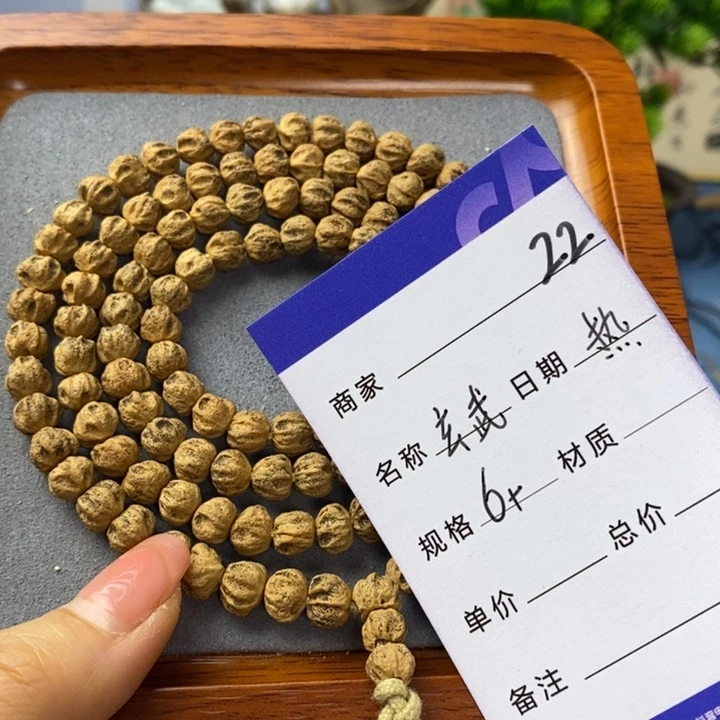 商家 22.
名称 玄武 日期 热
规格 6+ 材质
单价 总价
备注